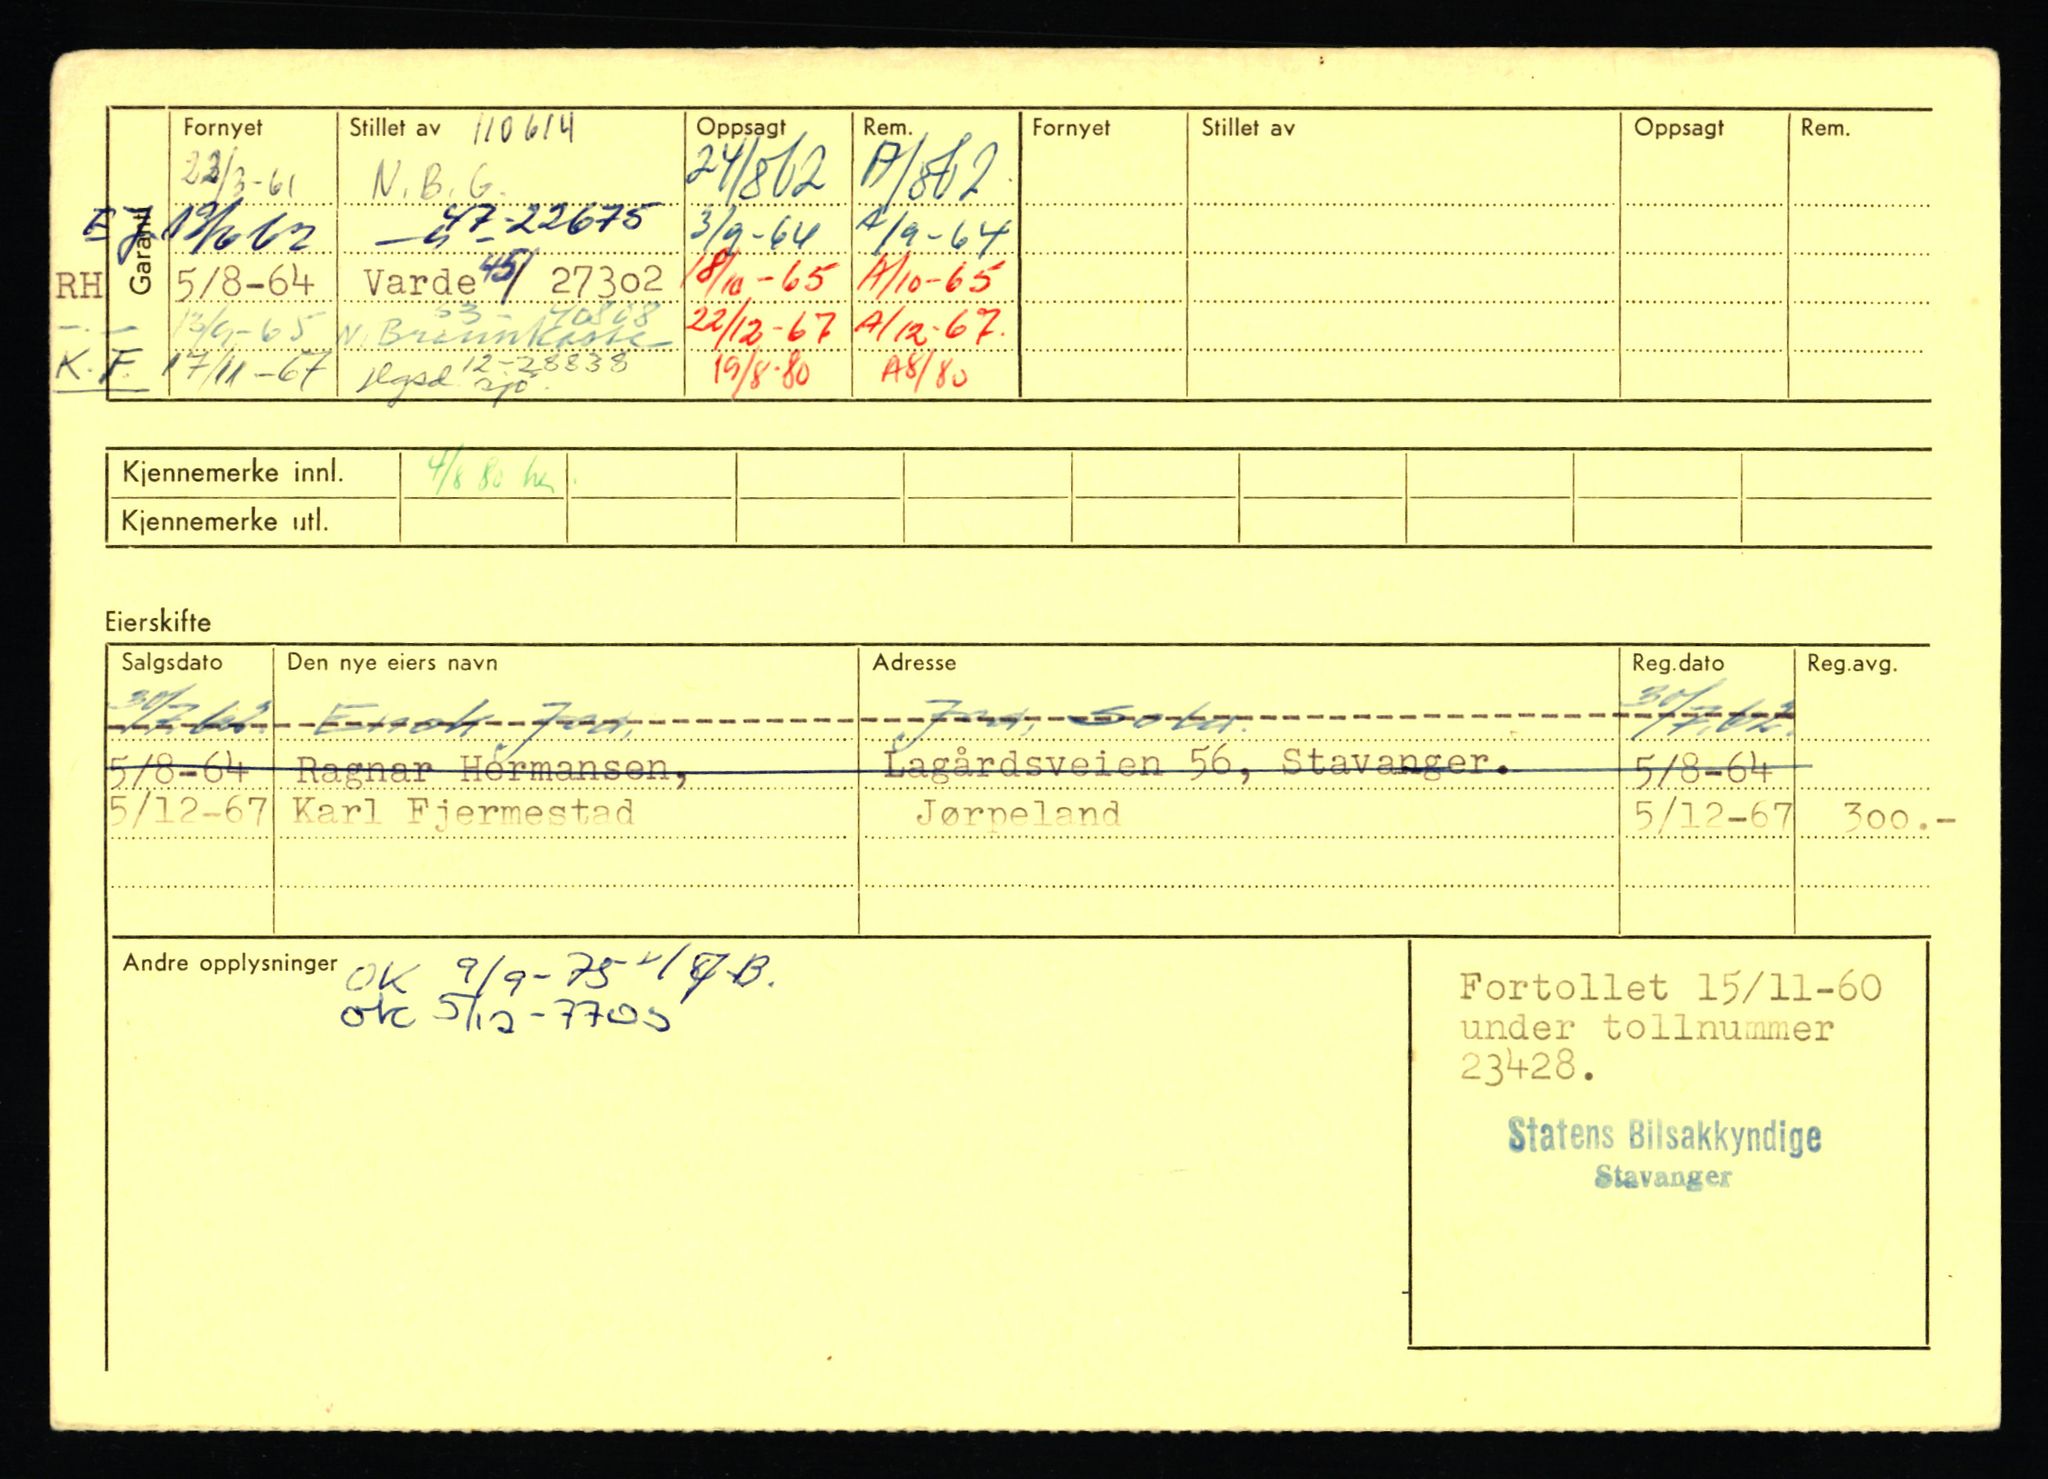 Garanti
Fornyet Stillet av 110614 Oppsagt Rem. Fornyet Stillet av Oppsagt Rem.
22/3-61 N.B.G. 24/8 62 A/8 62.
EJ 19/6 62 —"— 47-22675 3/9-64 A/9-64
RH 5/8-64 Varde 45/ 27302 18/10-65 A/10-65
—.— 13/9-65 53- 40808 22/12-67 A/12-67.
K.F. 17/11-67 12-28838 19/8-80 A8/80
Kjennemerke innl. 4/8 80
Kjennemerke utl.
Eierskifte
Salgsdato Den nye eiers navn Adresse Reg.dato Reg.avg.
30/7.62 30/7.62
5/8-64 Ragnar Hermansen, Lagårdsveien 56, Stavanger. 5/8-64
5/12-67 Karl Fjermestad Jørpeland 5/12-67 300.-
Andre opplysninger OK 9/9-75
OK 5/12-77
Fortollet 15/11-60
under tollnummer
23428.
Statens Bilsakkyndige
Stavanger